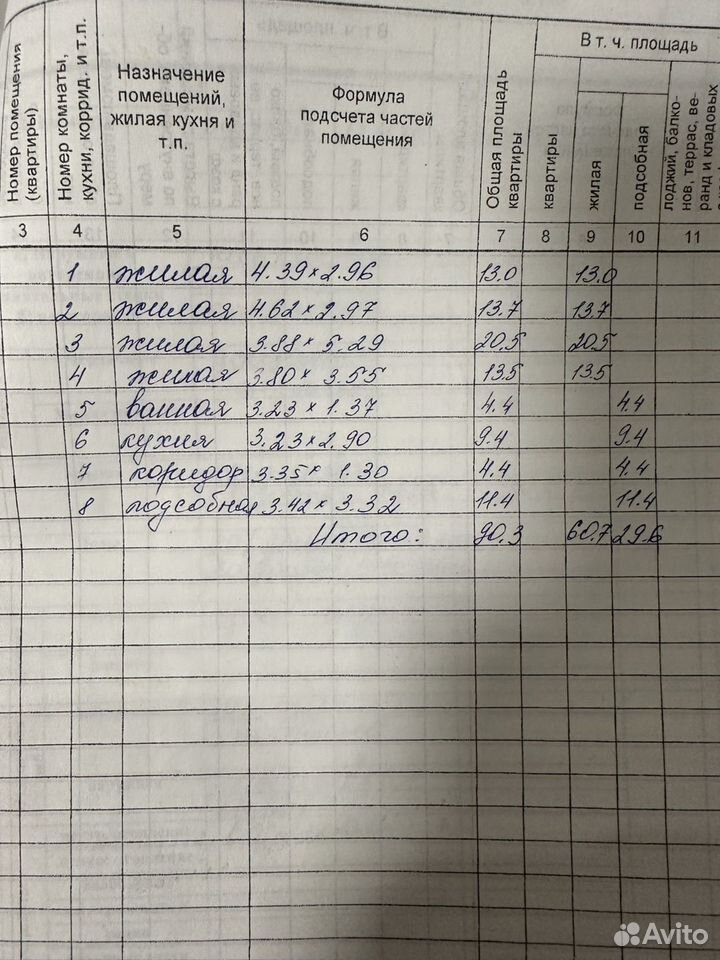 Номер помещения (квартиры)
Номер комнаты, кухни, коррид. и т.п.
Назначение помещений, жилая кухня и т.п.
Формула подсчета частей помещения
Общая площадь квартиры
В т. ч. площадь
квартиры
жилая
подсобная
лоджий, балко-
нов, террас, ве-
ранд и кладовых
3 4 5 6 7 8 9 10 11
1 жилая 4.39×2.96 13.0 13.0
2 жилая 4.62×2.97 13.7 13.7
3 жилая 3.88×5.29 20.5 20.5
4 жилая 3.80×3.55 13.5 13.5
5 ванная 3.23×1.37 4.4 4.4
6 кухня 3.23×2.90 9.4 9.4
7 коридор 3.35×1.30 4.4 4.4
8 подсобная 3.42×3.32 11.4 11.4
Итого: 90.3 60.7 29.6
Avito